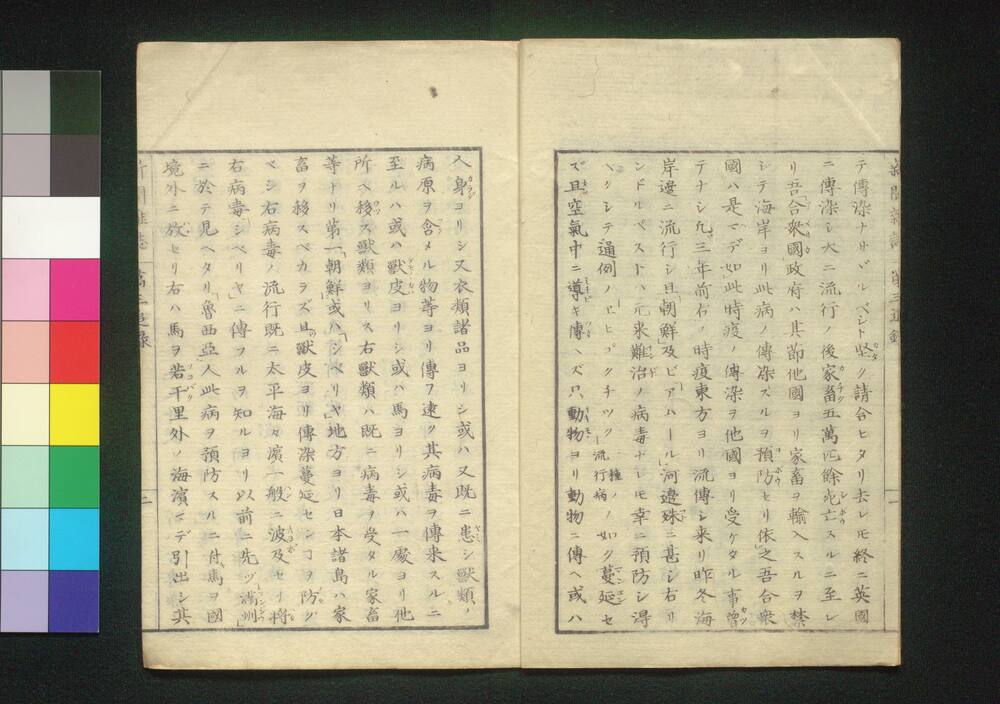 テ傳染ナサヾルベシト堅ク請合ヒタリ去レモ終ニ英國
ニ傳染シ大ニ流行ノ後家畜五萬匹餘死亡スルニ至レ
リ吾合衆國政府ハ其節他國ヨリ家畜ヲ輸入スルヲ禁
シテ海岸ヨリ此病ノ傳染スルヲ預防セリ依之吾合衆
國ハ是マデ如此時疫ノ傳染ヲ他國ヨリ受ケタル事曽
テナシ九三年前右ノ時疫東方ヨリ流傳シ来リ昨冬海
岸邊ニ流行シ且朝鮮及ビアハール河邊殊ニ甚シ右リ
ンドルペストハ元来難治ノ病毒ナレモ幸ニ預防シ得
ヘクシテ通例ノヱピクチツク一種ノ流行病ノ如ク蔓延セ
ズ且空氣中ニ導キ傳ヘズ只動物ヨリ動物ニ傳ヘ或ハ
人身ヨリシ又衣類諸品ヨリシ或ハ又既ニ患シ獸類ノ
病原ヲ含メル物等ヨリ傳フ速ク其病毒ヲ傳来スルニ
至ルハ或ハ獸皮ヨリシ或ハ馬ヨリシ或ハ一處ヨリ他
所ヘ移ス獸類ヨリス右獸類ハ既ニ病毒ヲ受タル家畜
等ナリ第一朝鮮或ハシベリヤ地方ヨリ日本諸島ハ家
畜ヲ移スベカラズ且獸皮ヨリ傳染蔓延センコヲ防グ
ベシ右病毒ノ流行既ニ太平海々濱一般ニ波及セリ將
右病毒シベリヤニ傳フルヲ知ルヨリ以前ニ先ヅ満州
ニ於テ見ヘタリ魯西亞人此病ヲ預防スルニ付馬ヲ國
境外ニ放セリ右ハ馬ヲ若干里外ノ海濱マデ引出シ其